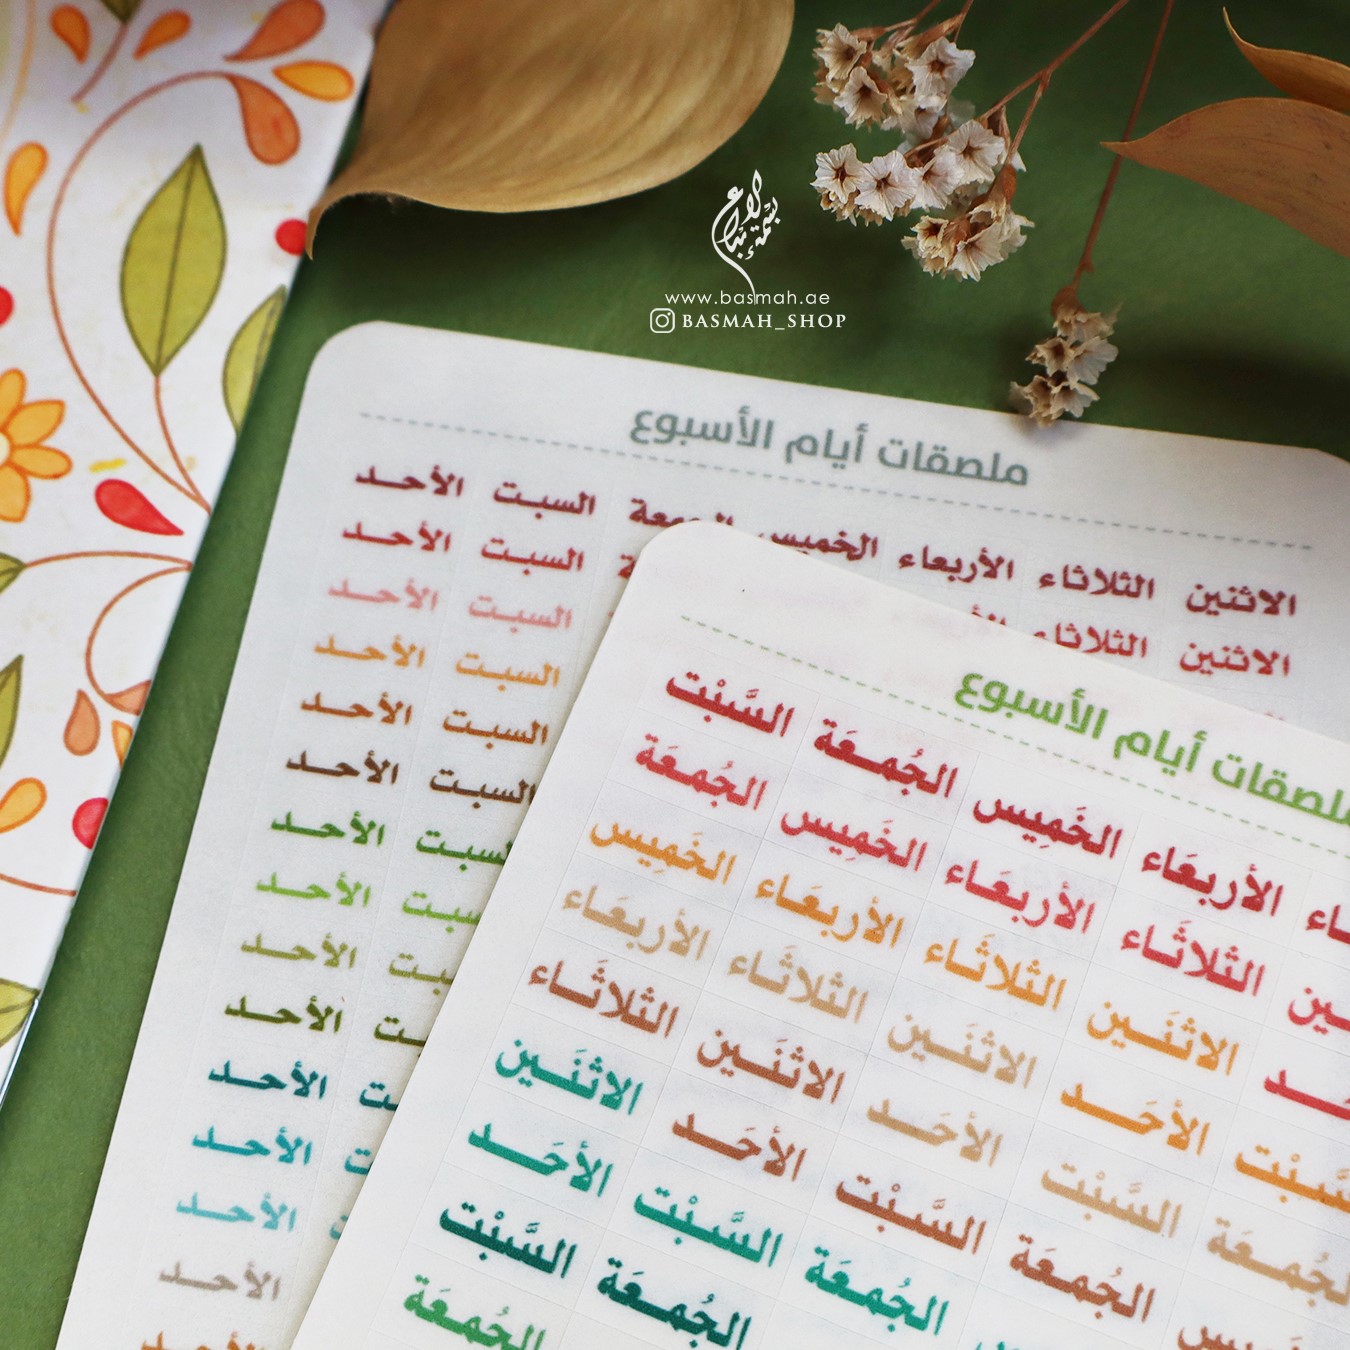 بسمة لا تباع
www.basmah.ae
BASMAH_SHOP
ملصقات أيام الأسبوع
الاثنين الثلاثاء الأربعاء الخميس الجمعة السبت الأحد
الاثنين الثلاثاء السبت الأحد
السبت الأحد
السبت الأحد
السبت الأحد
السبت الأحد
السبت الأحد
الأحد
الأحد
الأحد
الأحد
الأحد
الأحد
الأحد
الأحد
ملصقات أيام الأسبوع
الأربعَاء الخَمِيس الجُمعَة السَّبْت
الثلاثَاء الأربعَاء الخَمِيس الجُمعَة
الاثنَين الثلاثَاء الأربعَاء الخَمِيس
السَّبْت الأحَد الاثنَين الثلاثَاء الأربعَاء
الجُمعَة السَّبْت الأحَد الاثنَين الثلاثَاء
الجُمعَة السَّبْت الأحَد الاثنَين
الجُمعَة السَّبْت الأحَد
الجُمعَة السَّبْت
الجُمعَة